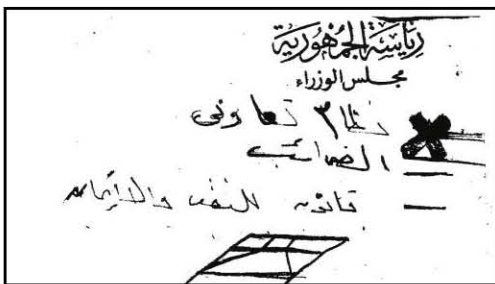 رياسة الجمهورية
مجلس الوزراء
نظام تعاونى
الضرائب
— قانون للنقد والائتمان